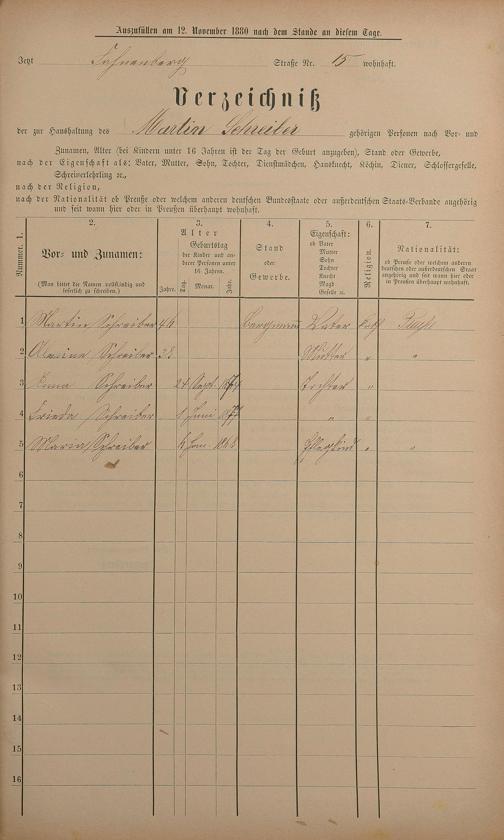 Auszufüllen am 12. November 1880 nach dem Stande an diesem Tage.
Jetzt Straße Nr. 15 wohnhaft.
Verzeichniß
der zur Haushaltung des Martin Schreiber gehörigen Personen nach Vor- und
Zunamen, Alter (bei Kindern unter 16 Jahren ist der Tag der Geburt anzugeben), Stand oder Gewerbe,
nach der Eigenschaft als: Vater, Mutter, Sohn, Tochter, Dienstmädchen, Hausknecht, Köchin, Diener, Schlossergeselle,
Schreiberlehrling ꝛc.,
nach der Religion,
nach der Nationalität ob Preuße oder welchem anderen deutschen Bundesstaate oder außerdeutschen Staats-Verbande angehörig
und seit wann hier oder in Preußen überhaupt wohnhaft.
Nummer. 1.
2.
Vor- und Zunamen:
(Man bittet die Namen vollständig und
leserlich zu schreiben.)
3.
Alter
Geburtstag
der Kinder und an-
derer Personen unter
16 Jahren.
Jahre. Tag. Monat. Jahr.
4.
Stand
oder
Gewerbe.
5.
Eigenschaft:
ob Vater
Mutter
Sohn
Tochter
Knecht
Magd
Geselle ꝛc.
6.
Religion.
7.
Nationalität:
ob Preuße oder welchem anderen
deutschen oder außerdeutschen Staat
angehörig und seit wann hier oder
in Preußen überhaupt wohnhaft.
1 Martin Schreiber 46 Bergmann Vater kath Preuße
2 Schreiber 38 Mutter " "
3 Anna Schreiber 24 Sept. Tochter " "
4 Frieda Schreiber 1 Juni 1877 " " "
5 Maria Schreiber Pflegkind " "
6
7
8
9
10
11
12
13
14
15
16